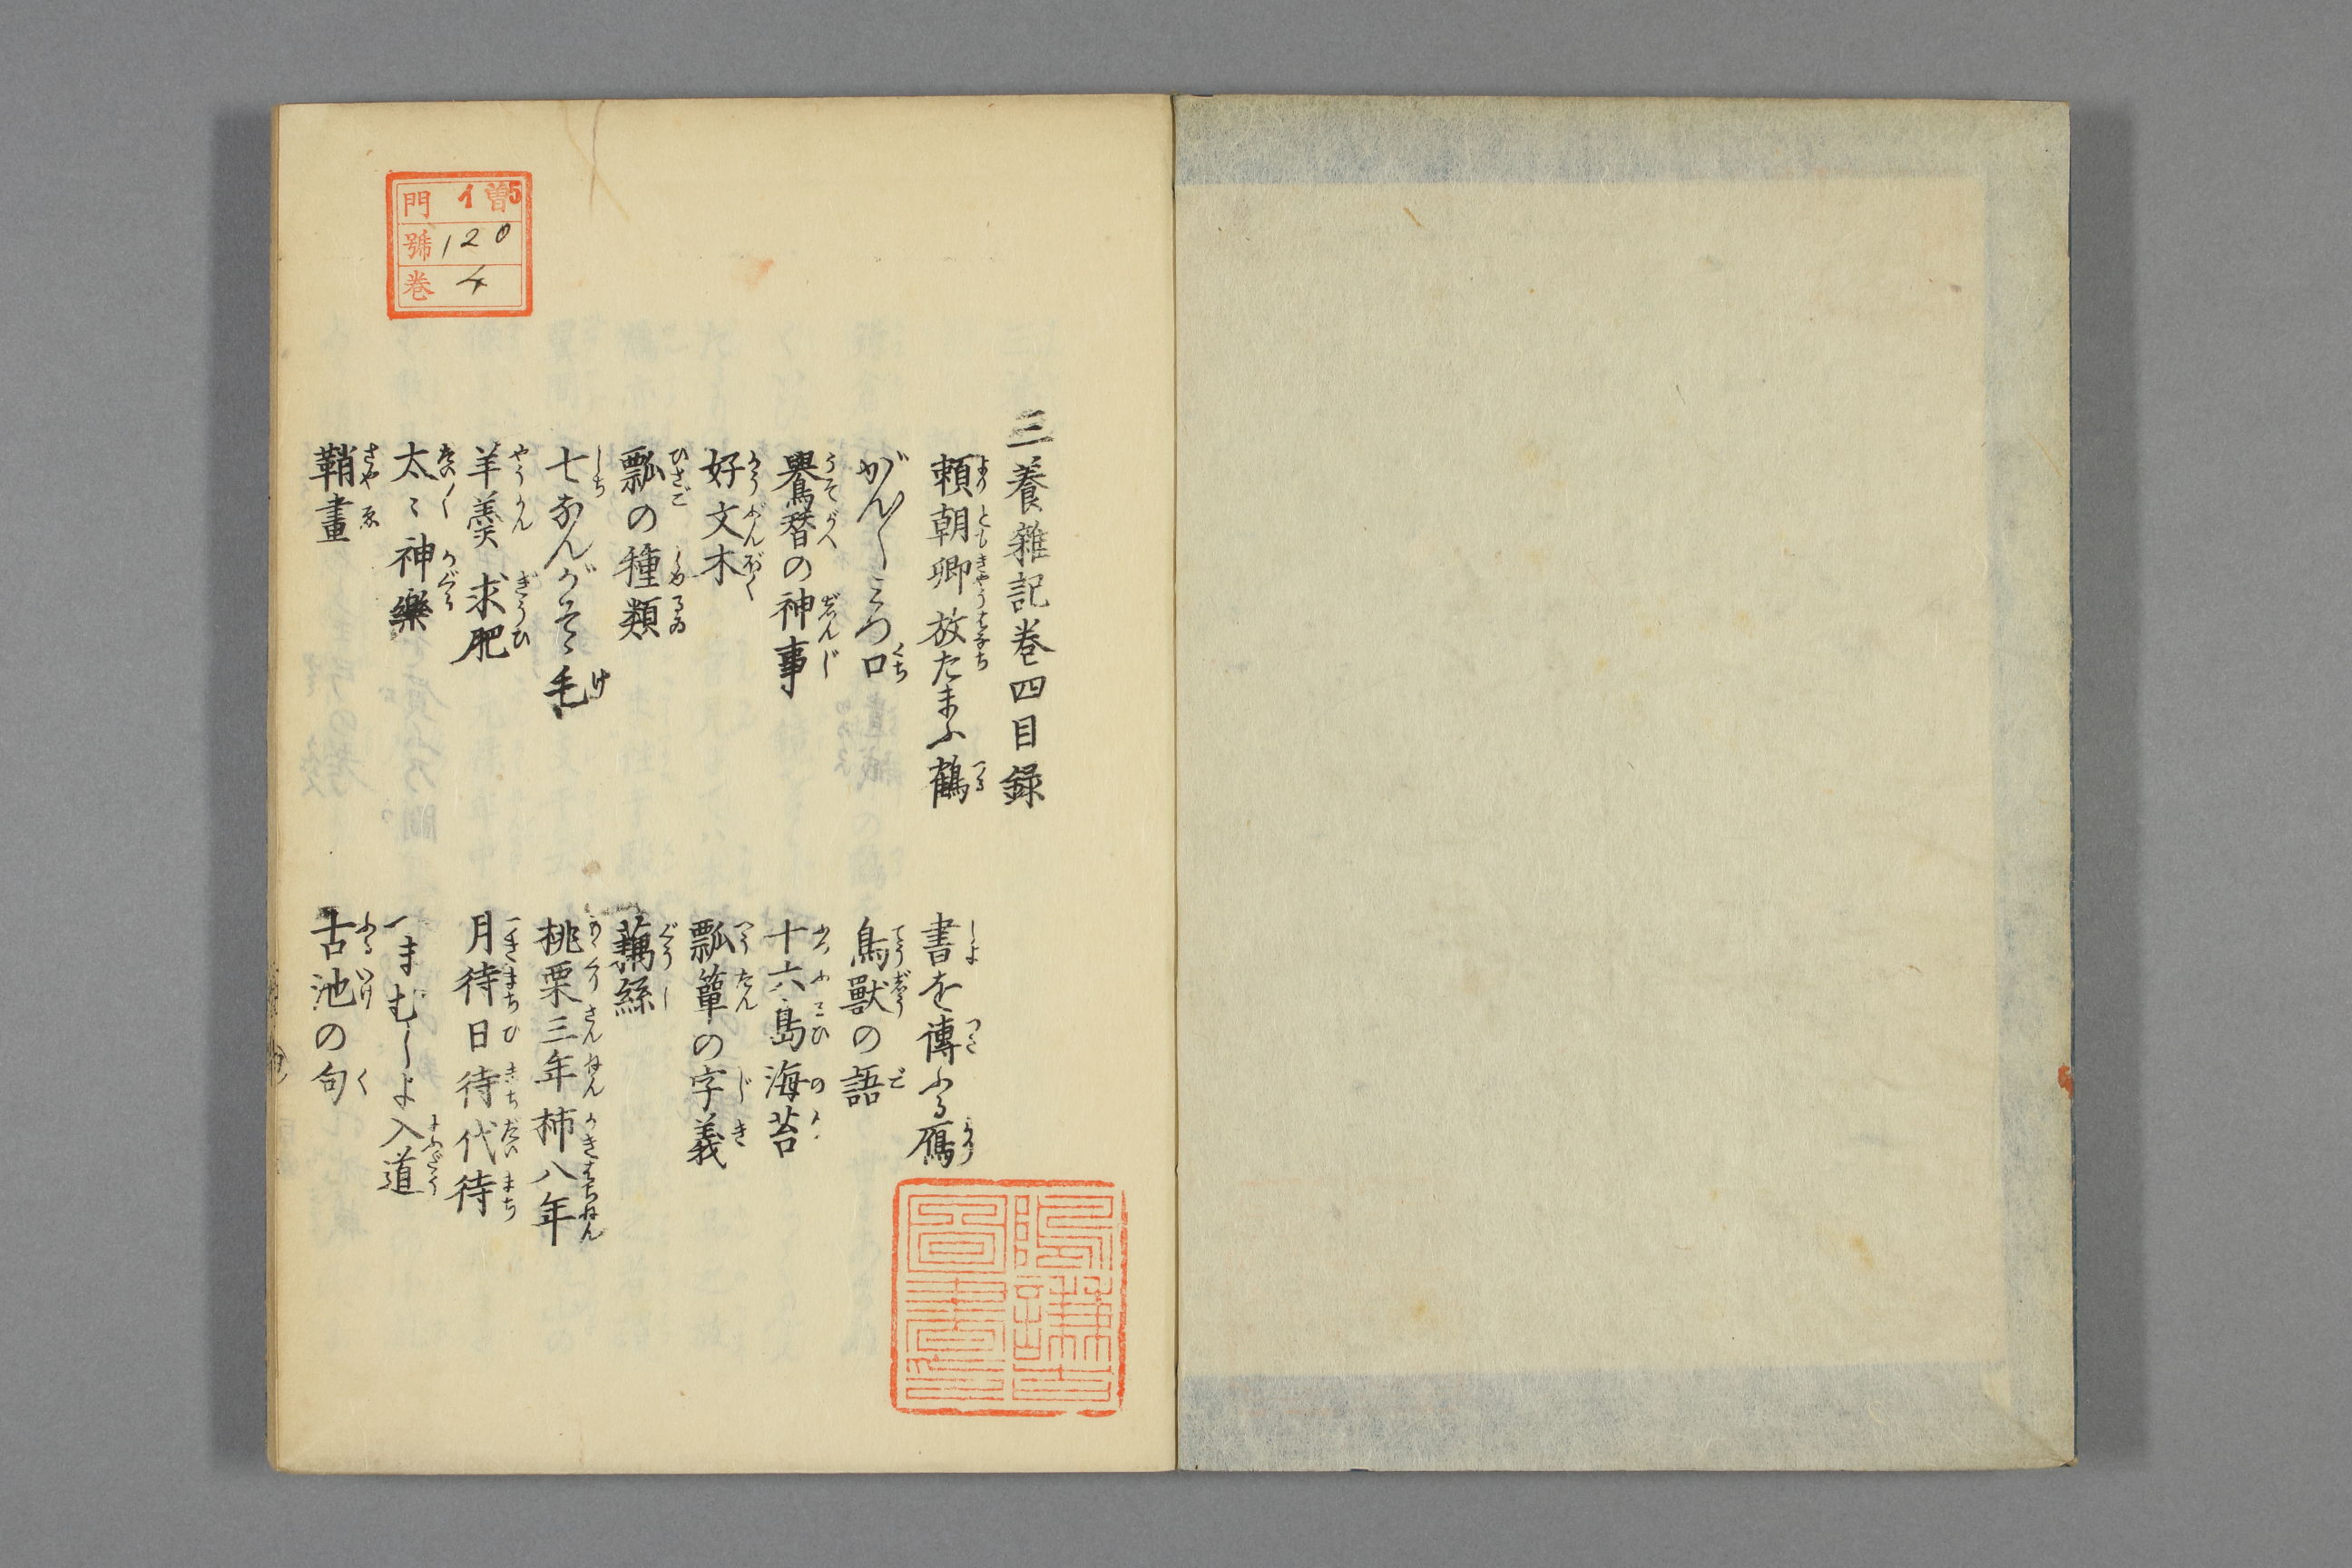 三養雜記巻四目録
頼朝卿放たまふ鶴
書を傳ふる鴈
がん〳〵みつ口
鳥獸の語
鷽替の神事
十六島海苔
好文木
瓢簞の字義
瓢の種類
藕絲
七なんがそゝ毛
桃栗三年柿八年
羊羹 求肥
月待日待代待
太〻神樂
へまむしよ入道
鞘畫
古池の句
門 イ 曽5
號 120
巻 4